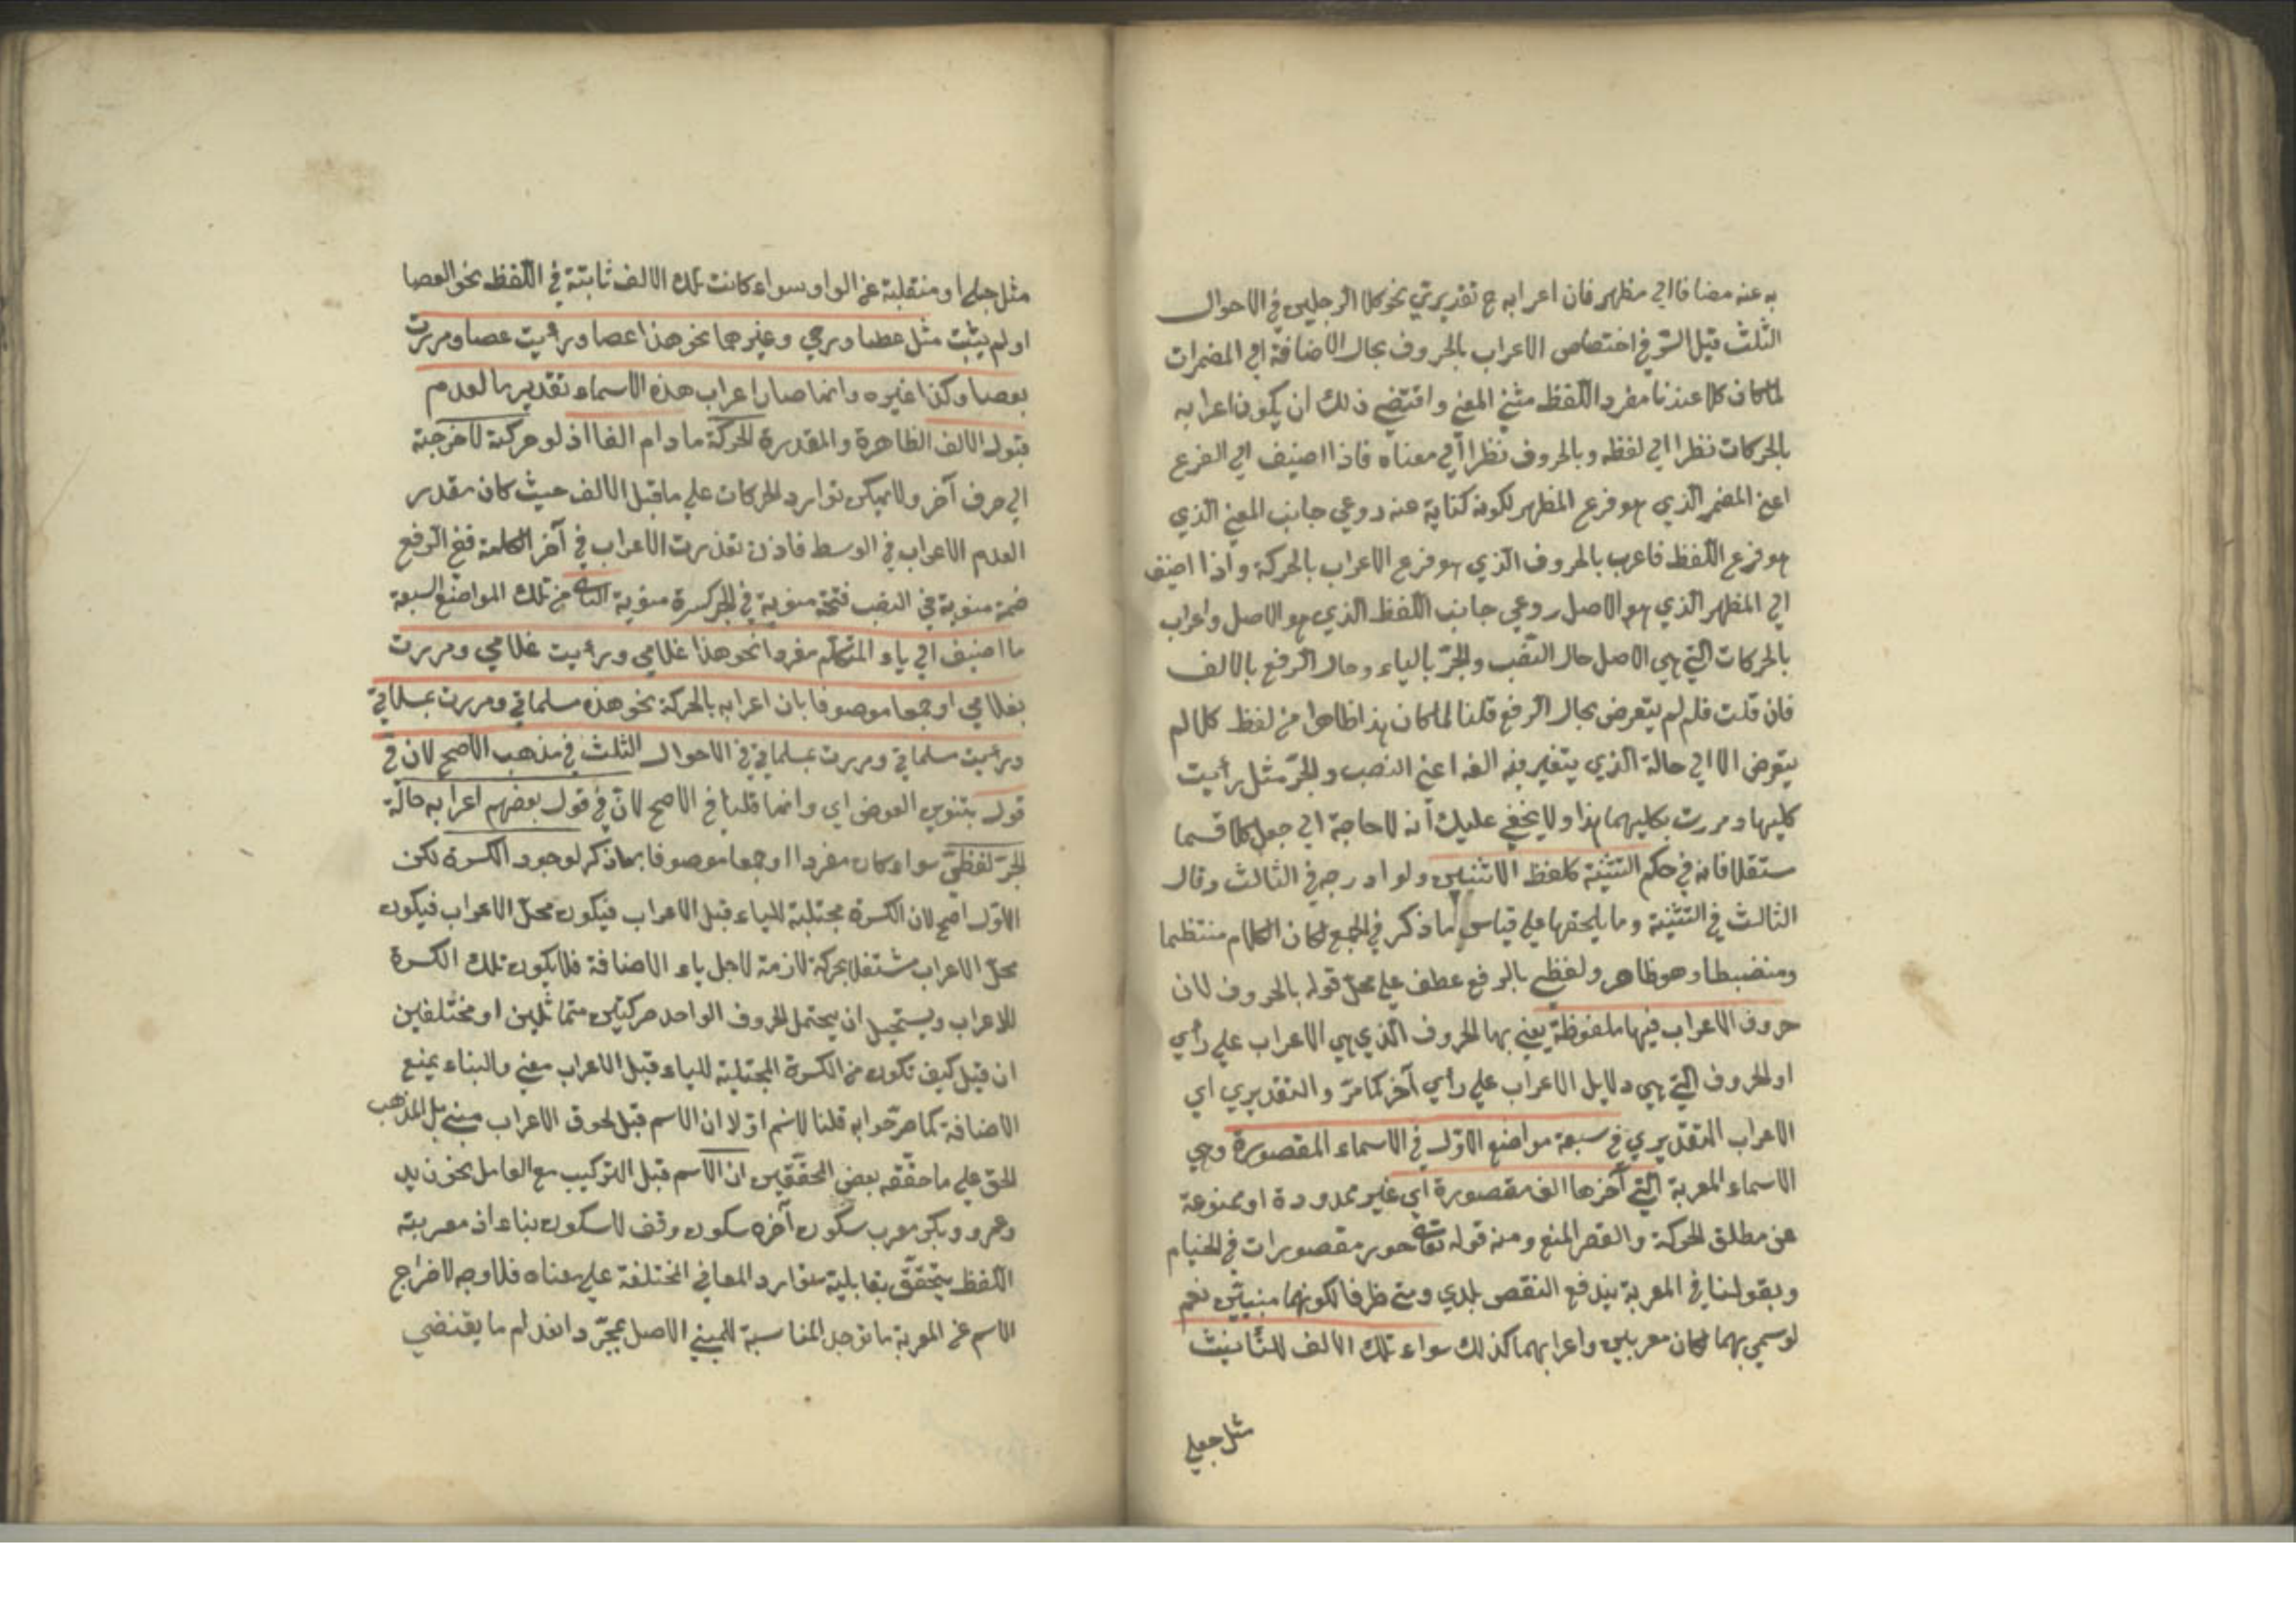 به عنه مضافا الى مظهر فان اعرابه ح تقديري نحو كلا الرجلين في الاحوال
الثلث قيل السر في اختصاص الاعراب بالحروف بحال الاضافة الى المضمرات
لما كان كلا عندنا مفرد اللفظ مثنى المعنى واقتضى ذلك ان يكون اعرابه
بالحركات نظرا الى لفظه وبالحروف نظرا الى معناه فاذا اضيف الى الفرع
اعني المضمر الذي هو فرع المظهر لكونه كناية عنه روعي جانب المعنى الذي
هو فرع اللفظ فاعرب بالحروف الذي هو فرع الاعراب بالحركة واذا اضيف
الى المظهر الذي هو الاصل روعي جانب اللفظ الذي هو الاصل واعراب
بالحركات التي هي الاصل حال النصب والجر بالياء وحال الرفع بالالف
فان قلت فلم لم يتعرض بحال الرفع قلنا لما كان هذا ظاهرا من لفظ كلا لم
يتعرض الا الى حالة الذي يتغير فيه الفه اعني النصب والجر مثل رأيت
كليهما ومررت بكليهما هذا ولا يخفى عليك أنه لا حاجة الى جعل كلا قسما
مستقلا فانه في حكم التثنية كلفظ الاثنين ولو ادرجه في الثالث وقال
الثالث في التثنية وما يلحقها على قياس ما ذكر في الجمع لكان الكلام منتظما
ومنضبطا وهو ظاهر ولفظي بالرفع عطف على محل قوله بالحروف لان
حروف الاعراب فيها ملفوظة يعني بها الحروف الذي هي الاعراب على رأي
او الحروف التي هي دلايل الاعراب على رأي آخر كما مرّ والتقديري اي
الاعراب التقديري في سبعة مواضع الاوّل في الاسماء المقصورة وهي
الاسماء المعربة التي آخرها الف مقصورة اي غير ممدودة او ممنوعة
عن مطلق الحركة والقصر المنع ومنه قوله تعالى حور مقصورات في الخيام
وبقولنا في المعربة يندفع النقص بلدي ومتى ظرفا لكونهما مبنيّين نعم
لو سمي بهما لكان معربين واعرابهما كذلك سواء تلك الالف للتأنيث
مثل حبلى
مثل حبلى او منقلبة عن الواو سواء كانت تلك الالف ثابتة في اللفظ نحو العصا
او لم يثبت مثل عصا ورحى وغيرهما نحو هذا عصا ورأيت عصا ومررت
بعصا وكذا غيره وانما صار اعراب هذه الاسماء تقديريا لعدم
قبول الالف الظاهرة والمقدرة الحركة ما دام الفا اذ لو حركته لاخرجته
الى حرف آخر ولا يمكن توارد الحركات على ما قبل الالف حيث كان مقدر
العدم الاعراب في الوسط فاذن تعذرت الاعراب في آخر الكلمة ففي الرفع
ضمة منوية في النصب فتحة منوية في الجر كسرة منوية الثاني من تلك المواضع السبعة
ما اضيف الى ياء المتكلم مفردا نحو هذا غلامي ورأيت غلامي ومررت
بغلامي او جمعا موصوفا بان اعرابه بالحركة نحو هذه سلماتي ومررت بمسلماتي
ورأيت مسلماتي ومررت بمسلماتي في الاحوال الثلث في مذهب الاصح لان في
قول بتنوين العوض اي وانما قلنا في الاصح لانّ في قول بعضهم اعرابه حالة
الجرّ لفظيّ سواء كان مفردا او جمعا موصوفا بما ذكر لوجود الكسرة لكن
الاوّل اصح لان الكسرة مجتلبة للياء قبل الاعراب فيكون محلّ الاعراب فيكون
محلّ الاعراب مشتغلا بحركة لازمة لاجل ياء الاضافة فلا يكون تلك الكسرة
للاعراب ويستحيل ان يحتمل الحروف الواحد حركتين متماثلين او مختلفين
ان قيل كيف تكون من الكسرة المجتلبة للياء قبل الاعراب معنى والبناء يمنع
الاضافة كما مرّ جوابه قلنا لا نسلم اوّلا ان الاسم قبل لحوق الاعراب مبني بل المذهب
الحق على ما حقّقه بعض المحقّقين ان الاسم قبل التركيب مع العامل نحو زيد
وعمرو وبكر معرب سكون آخره سكون وقف لا سكون بناء اذ معربية
اللفظ يتحقّق بقابلية توارد المعاني المختلفة على معناه فلا وجه لاخراج
الاسم عن المعربة ما توجد المناسبة للمبني الاصل بمجرّد انعدام ما يقتضي